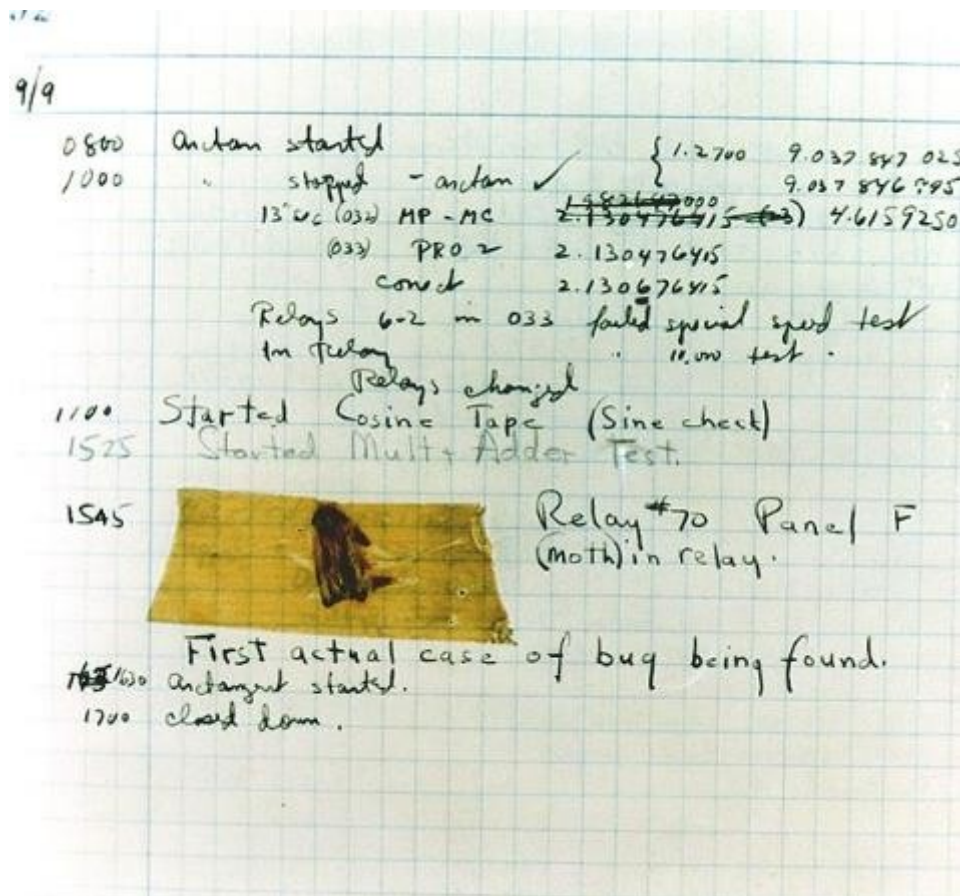 9/9
0800 arctan started { 1.2700 9.037 847 025
1000 " stopped - arctan ✓ 9.037 846 995
13" uc (032) MP - MC 2.130476415 4.6159250
(033) PRO 2 2.130476415
correct 2.130676415
Relays 6-2 in 033 failed special speed test
In relay " 10.000 test .
Relays changed
1100 Started Cosine Tape (Sine check)
1525 Started Mult + Adder Test.
1545 Relay #70 Panel F
(moth) in relay.
First actual case of bug being found.
1630 arctangent started.
1700 closed down.